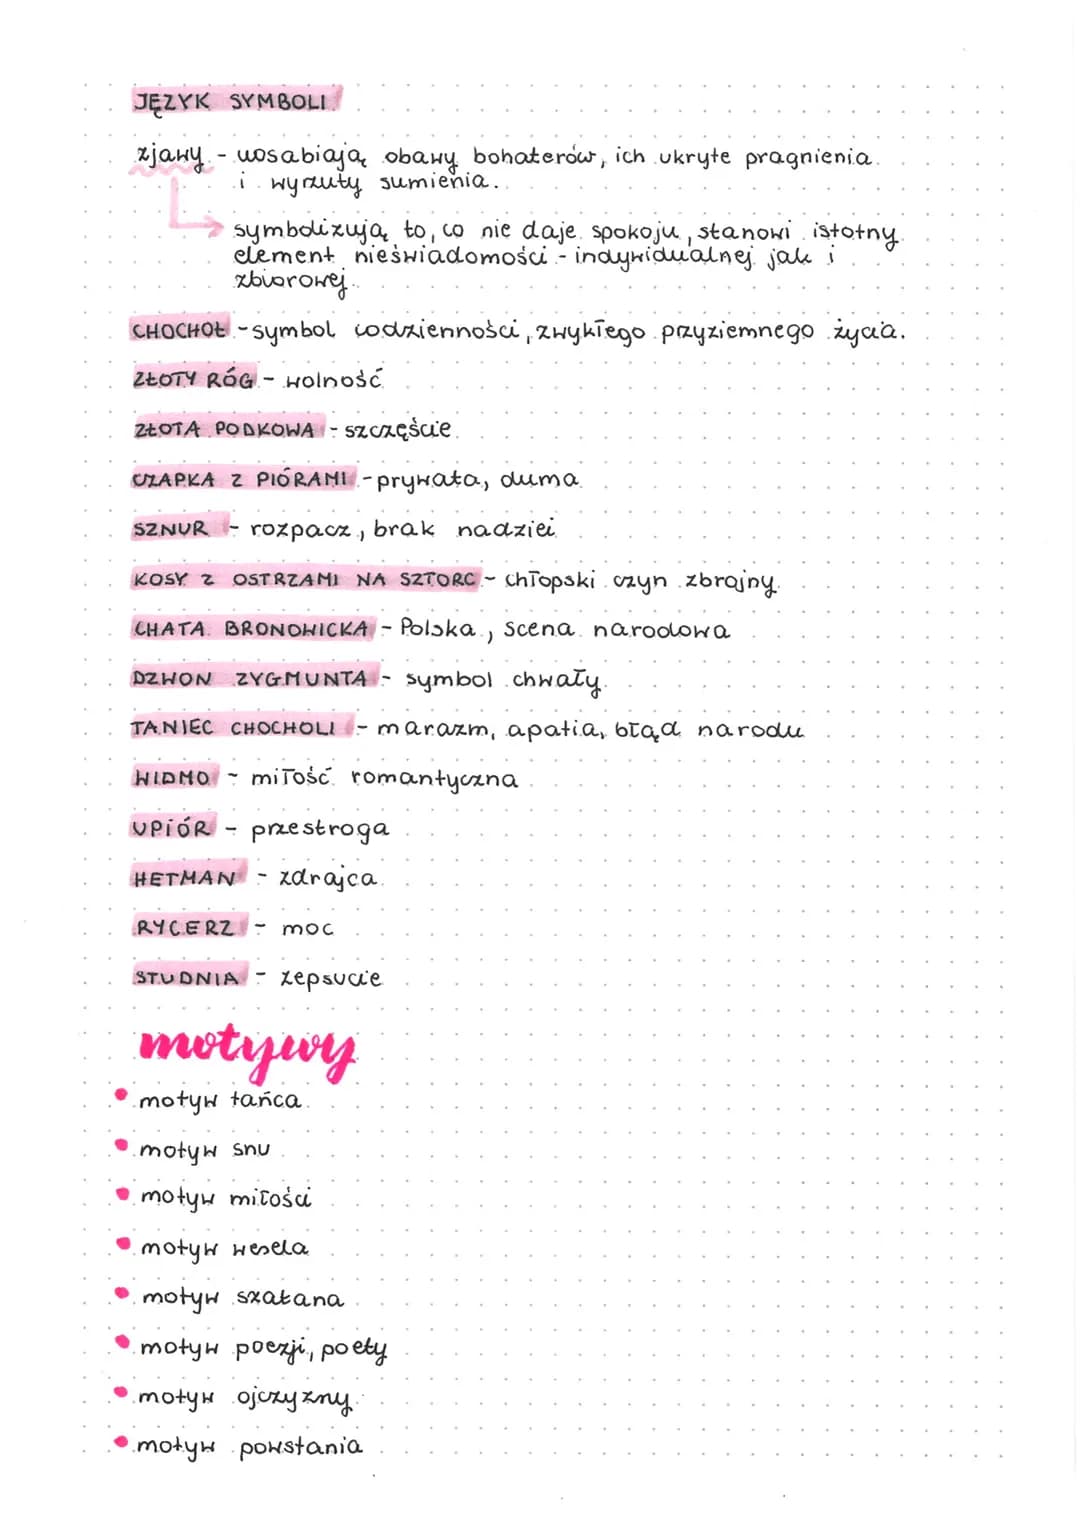 JĘZYK SYMBOLI
zjawy - uosabiają obawy bohaterów, ich ukryte pragnienia
i wyrzuty sumienia.
symbolizują to, co nie daje spokoju, stanowi istotny
element nieświadomości - indywidualnej jak i
zbiorowej.
CHOCHOŁ - symbol codzienności, zwykłego przyziemnego życia.
ZŁOTY RÓG - wolność
ZŁOTA PODKOWA - szczęście
CZAPKA Z PIÓRAMI - prywata, duma
SZNUR - rozpacz, brak nadziei
KOSY Z OSTRZAMI NA SZTORC - chłopski czyn zbrojny
CHATA BRONOWICKA - Polska, scena narodowa
DZWON ZYGMUNTA - symbol chwały
TANIEC CHOCHOLI - marazm, apatia, błąd narodu
WIDMO - miłość romantyczna
UPIÓR - przestroga
HETMAN - zdrajca
RYCERZ - moc
STUDNIA - zepsucie
motywy
• motyw tańca
• motyw snu
• motyw miłości
• motyw wesela
• motyw szatana
• motyw poezji, poety
• motyw ojczyzny
• motyw powstania